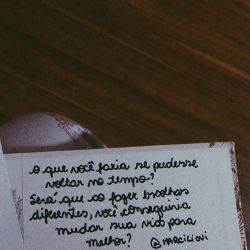 O que você faria se pudesse
voltar no tempo?
Será que ao fazer escolhas
diferentes, você conseguiria
mudar sua vida para
melhor? @marcilioni